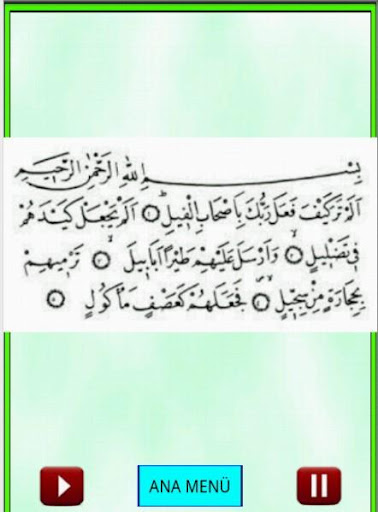 بِسْمِ اللهِ الرَّحْمٰنِ الرَّحِيمِ
اَلَمْ تَرَ كَيْفَ فَعَلَ رَبُّكَ بِاَصْحَابِ الْفِيلِ ۝ اَلَمْ يَجْعَلْ كَيْدَهُمْ
فِى تَضْلِيلٍ ۝ وَاَرْسَلَ عَلَيْهِمْ طَيْرًا اَبَابِيلَ ۝ تَرْمِيهِمْ
بِحِجَارَةٍ مِنْ سِجِّيلٍ ۝ فَجَعَلَهُمْ كَعَصْفٍ مَأْكُولٍ ۝
ANA MENÜ